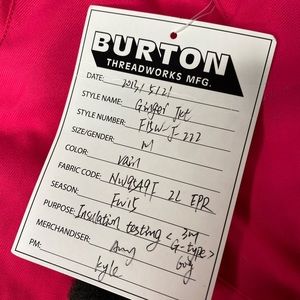 BURTON
THREADWORKS MFG.
DATE: 2013/5/21
STYLE NAME: Ginger Jkt
STYLE NUMBER: F15W-J-222
SIZE/GENDER: M
COLOR: vain
FABRIC CODE: NW9549I 2L EPR
SEASON: FW15
PURPOSE: Insulation testing < 3M G-type >
MERCHANDISER: Amy 60g
PM: Kyle